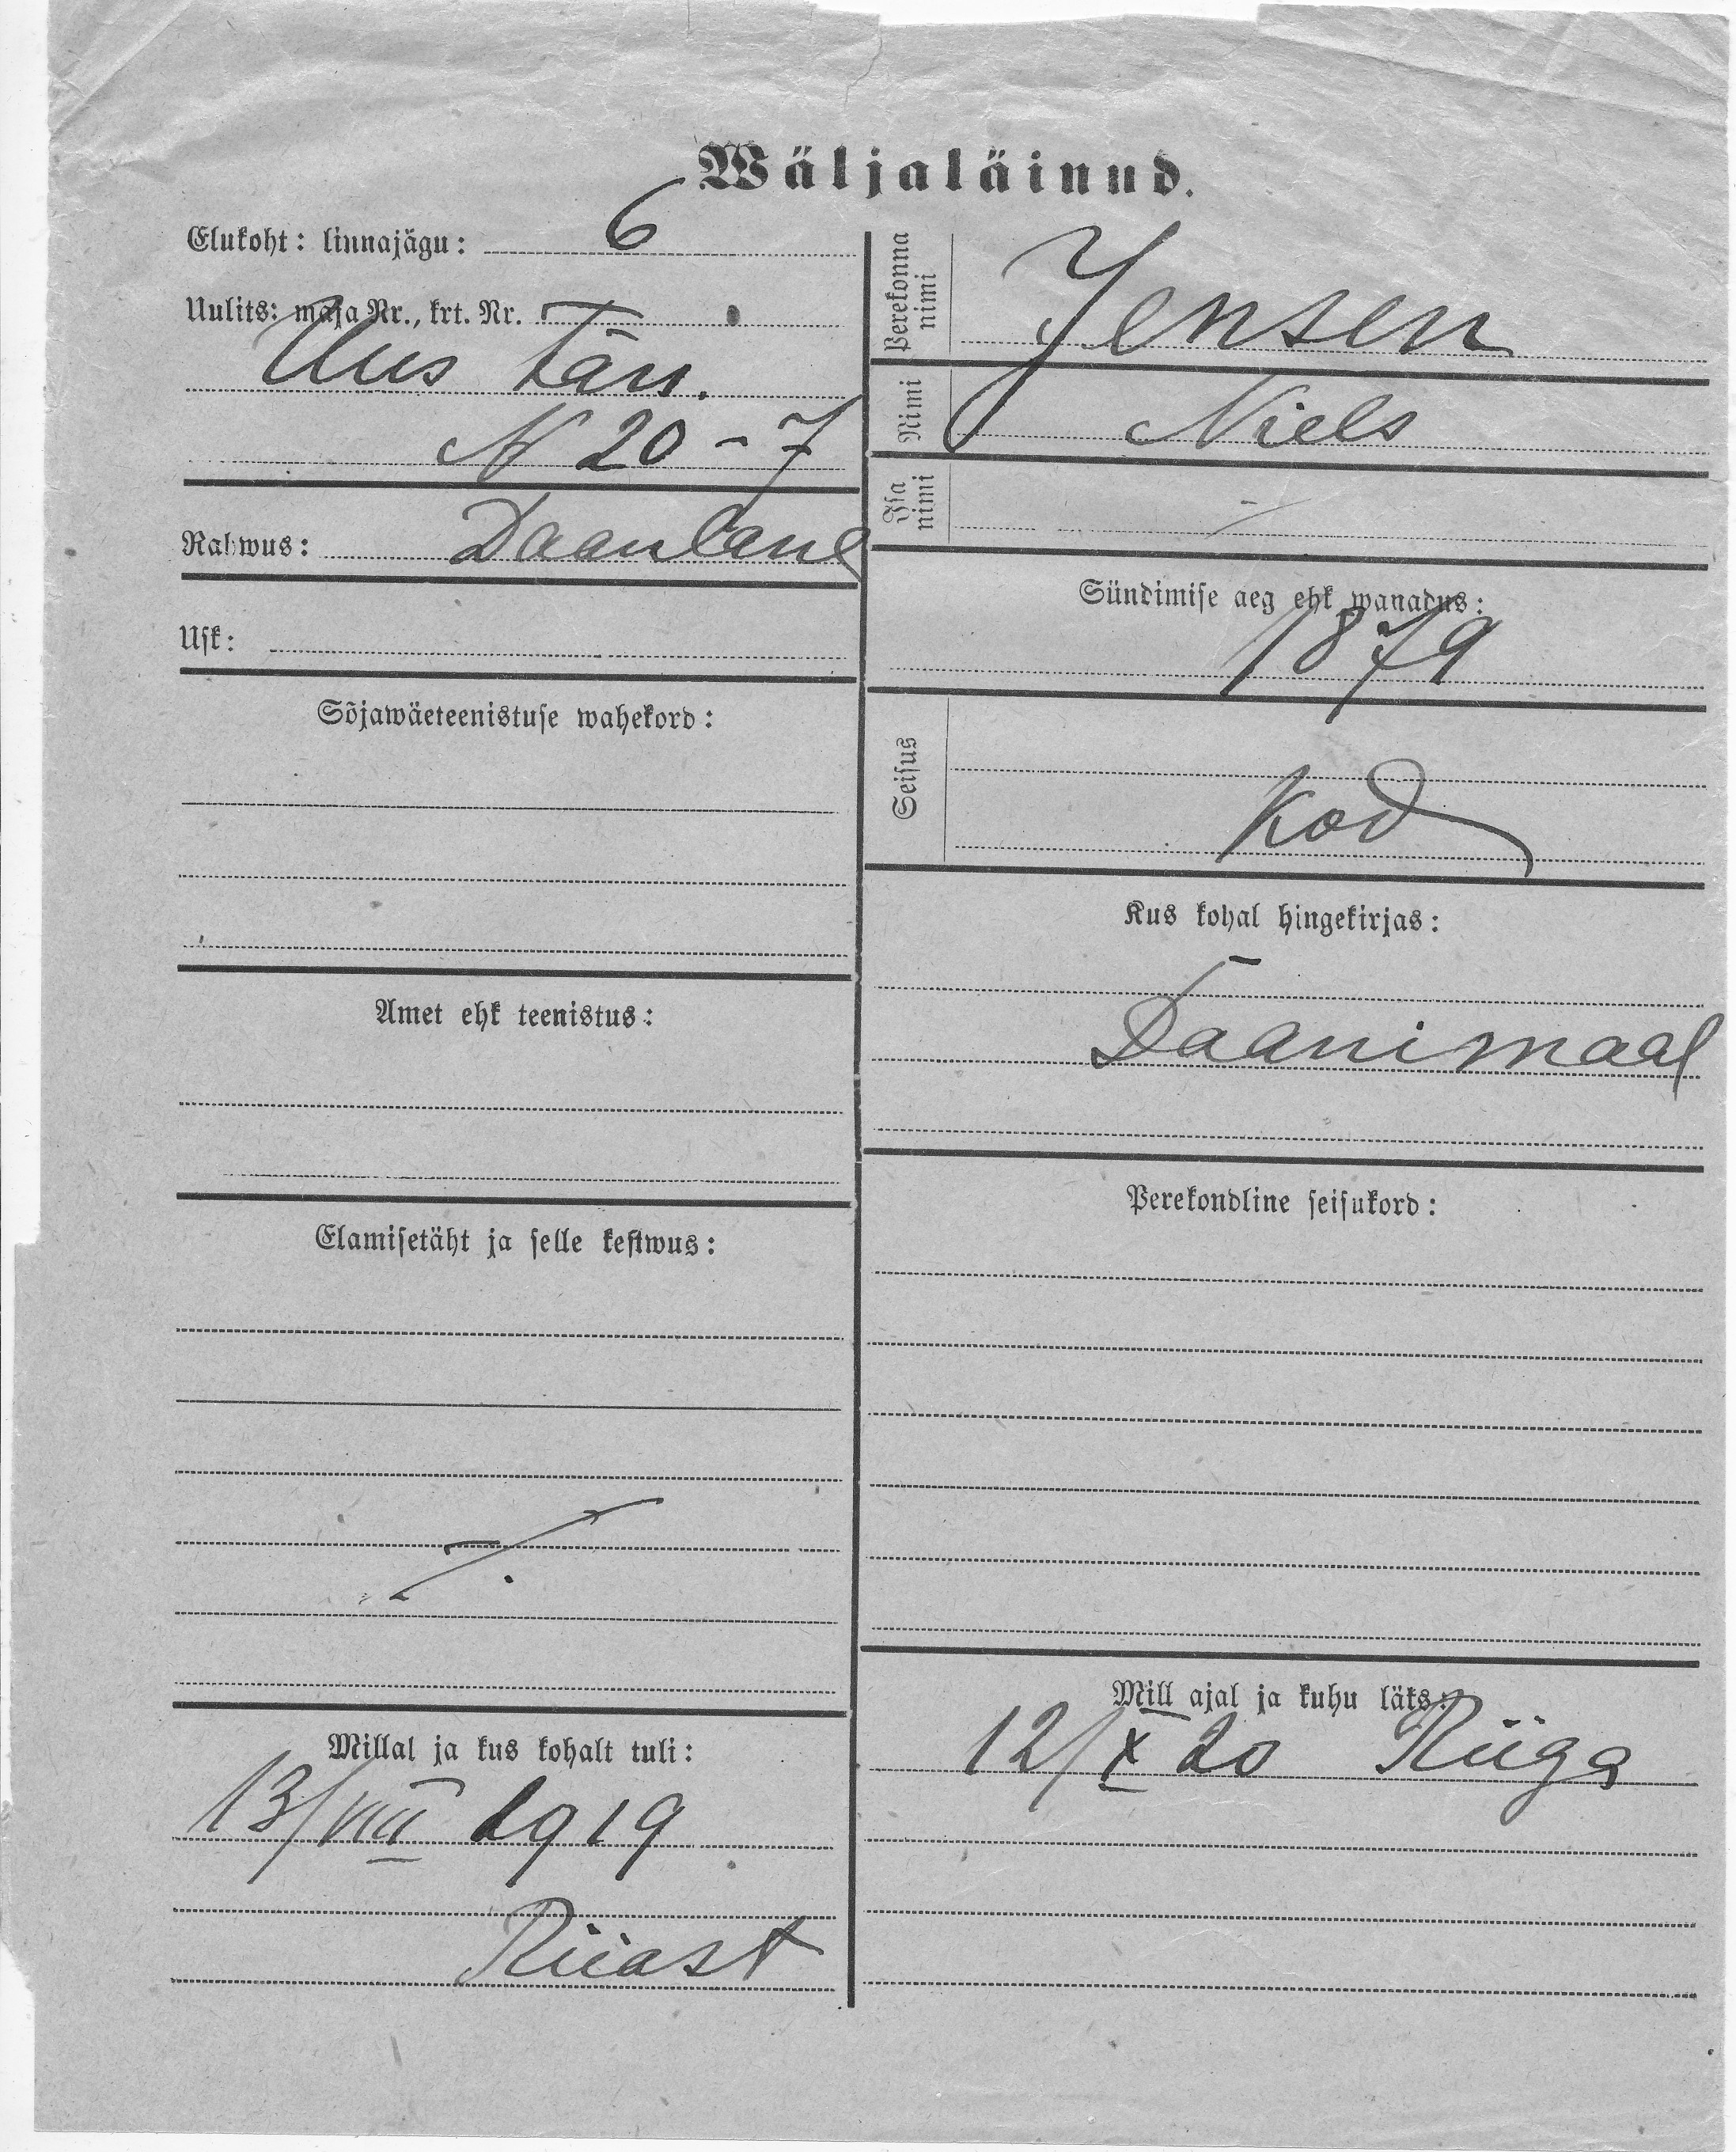 Wäljaläinud.
Elukoht: linnajägu: 6
Uulits: maja Nr., krt. Nr.
Uus tän.
N 20 - 7
Rahwus: Daanlane
Usk:
Sõjawäeteenistuse wahekord:
Amet ehk teenistus:
Elamisetäht ja selle kestwus:
Millal ja kus kohalt tuli:
13/VIII 1919
Riiast
Perekonna nimi Jensen
Nimi Niels
Isa nimi -
Sündimise aeg ehk wanadus:
1879
Seisus
Kod
Kus kohal hingekirjas:
Daanimaal
Perekondline seisukord:
Mill ajal ja kuhu läks:
12/X 20 Riiga